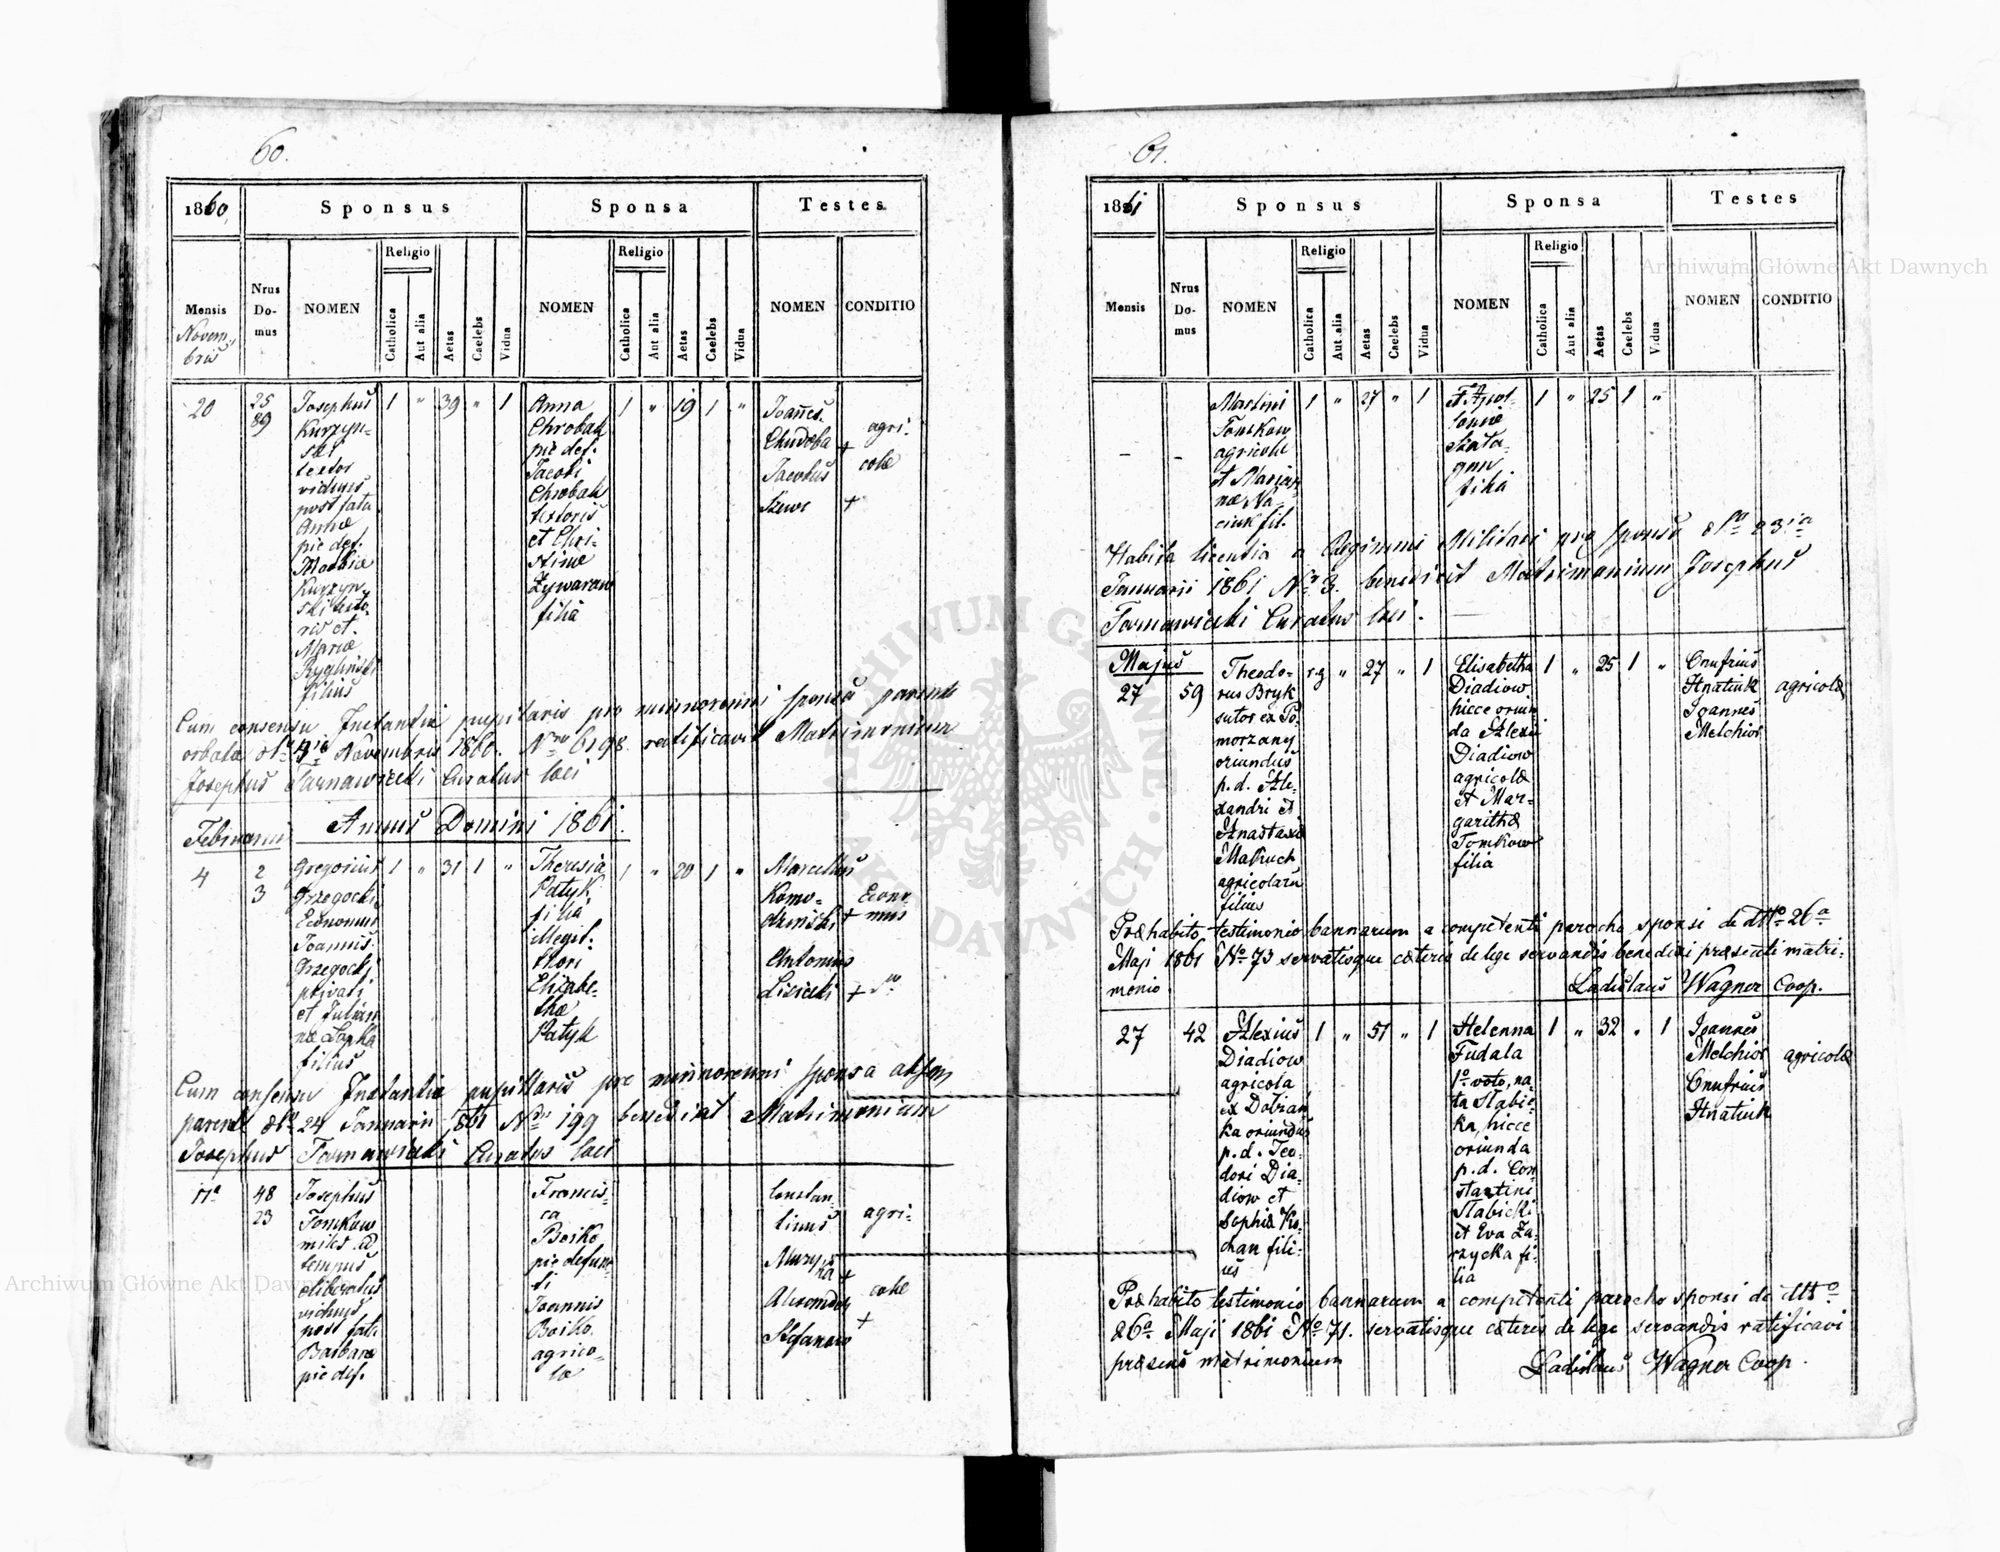 60.
1860
Sponsus
Sponsa
Testes
Mensis
Novem-
bris
Nrus
Do-
mus
NOMEN
Religio
Catholica
Aut alia
Aetas
Caelebs
Vidua
NOMEN
Religio
Catholica
Aut alia
Aetas
Caelebs
Vidua
NOMEN
CONDITIO
20
25
89
Josephus
Kurzyn-
ski
textor
viduus
post fata
Annæ
pie def.
Mathiæ
Kurzyn-
ski texto-
ris et
Mariæ
filius
1 " 39 " 1
Anna
Chrobak
pie def.
Jacobi
Chrobak
textoris
et Chri-
stinæ
Zywaron
filia
1 " 19 1 "
Joañes
Chudoba +
Jacobus
Szewc +
agri-
colæ
Cum consensu Instantiæ pupilaris pro minorenni sponsa parente
orbata Novembris 1860. Nro 6198 ratificavit Matrimonium
Josephus Tarnawiecki Curatus loci
Februarii
Annus Domini 1861.
4
2
3
Gregorius
Grzegocki
Economus
Joannis
Grzegocki
privati
et Julian-
næ Łapka
filius
1 " 31 1 "
Theresia
Patyk
filia
illegit.
thori
Elisabe-
thæ
Patyk
1 " 20 1 "
Marcellus
Komo-
dzinski +
Antonius
Lisiecki +
Econo
mus
Cum consensu Instantiæ pupillaris pro minorenni sponsa
parente 24 Januarii 1861 Nro 199 benedixit Matrimonium
Josephus Tarnawiecki Curatus loci
11a
48
23
Josephus
Tomkow
miles ad
tempus
eliberatus
viduus
post fata
Barbaræ
pie def.
Francis-
ca
Boiko
pie defunc-
ti
Joannis
Boiko
agrico-
læ
Constan-
tinus
+
Alexander
Stefanow +
agri-
colæ
61.
1861
Sponsus
Sponsa
Testes
Mensis
Nrus
Do-
mus
NOMEN
Religio
Catholica
Aut alia
Aetas
Caelebs
Vidua
NOMEN
Religio
Catholica
Aut alia
Aetas
Caelebs
Vidua
NOMEN
CONDITIO
– –
Martini
Tomkow
agricolæ
et Marian-
næ Na-
ciuk fil.
1 " 27 " 1
et Apol-
loniæ
filia
1 " 25 1 "
Habita licentia a Regimini Militari pro sponso dto 23ia
Januarii 1861 No 3. benedixit Matrimonium Josephus
Tarnawiecki Curatus loci.
Majus
27
59
Theodo-
rus Bryk
sutor ex Po-
morzany
oriundus
p. d. Ale-
xandri et
Anastasiæ
Makuch
agricolarū
filius
r.g " 27 " 1
Elisabetha
Diadiow
hicce oriun
da Alexii
Diadiow
agricolæ
et Mar-
garithæ
Tomkow
filia
1 " 25 1 "
Onufrius
Hnatiuk
Joannes
Melchior
agricolæ
Præhabito testimonio bannarum a competenti parocho sponsi de dtto 26a
Maji 1861 No 73 servatisque cæteris de lege servandis benedixi præsenti matri-
monio
Ladislaus Wagner Coop.
27
42
Alexius
Diadiow
agricola
ex Dobrian-
ka oriundus
p. d. Teo-
dori Dia-
diow et
Sophiæ Ko-
chan fili-
us
1 " 51 " 1
Helenna
Fudala
1o voto, na-
ta Slabic-
ka, hicce
oriunda
p. d. Con
stantini
Slabicki
et Eva Za-
rzycka fi-
lia
1 " 32 " 1
Joannes
Melchior
Onufrius
Hnatiuk
agricolæ
Præhabito testimonio bannarum a competenti parocho sponsi de dtto
26a Maji 1861 No 71. servatisque cæteris de lege servandis ratificavi
præsens matrimonium
Ladislaus Wagner Coop.
Archiwum Główne Akt Dawnych
Archiwum Główne Akt Dawnych
ARCHIWUM GŁÓWNE · AKT DAWNYCH ·